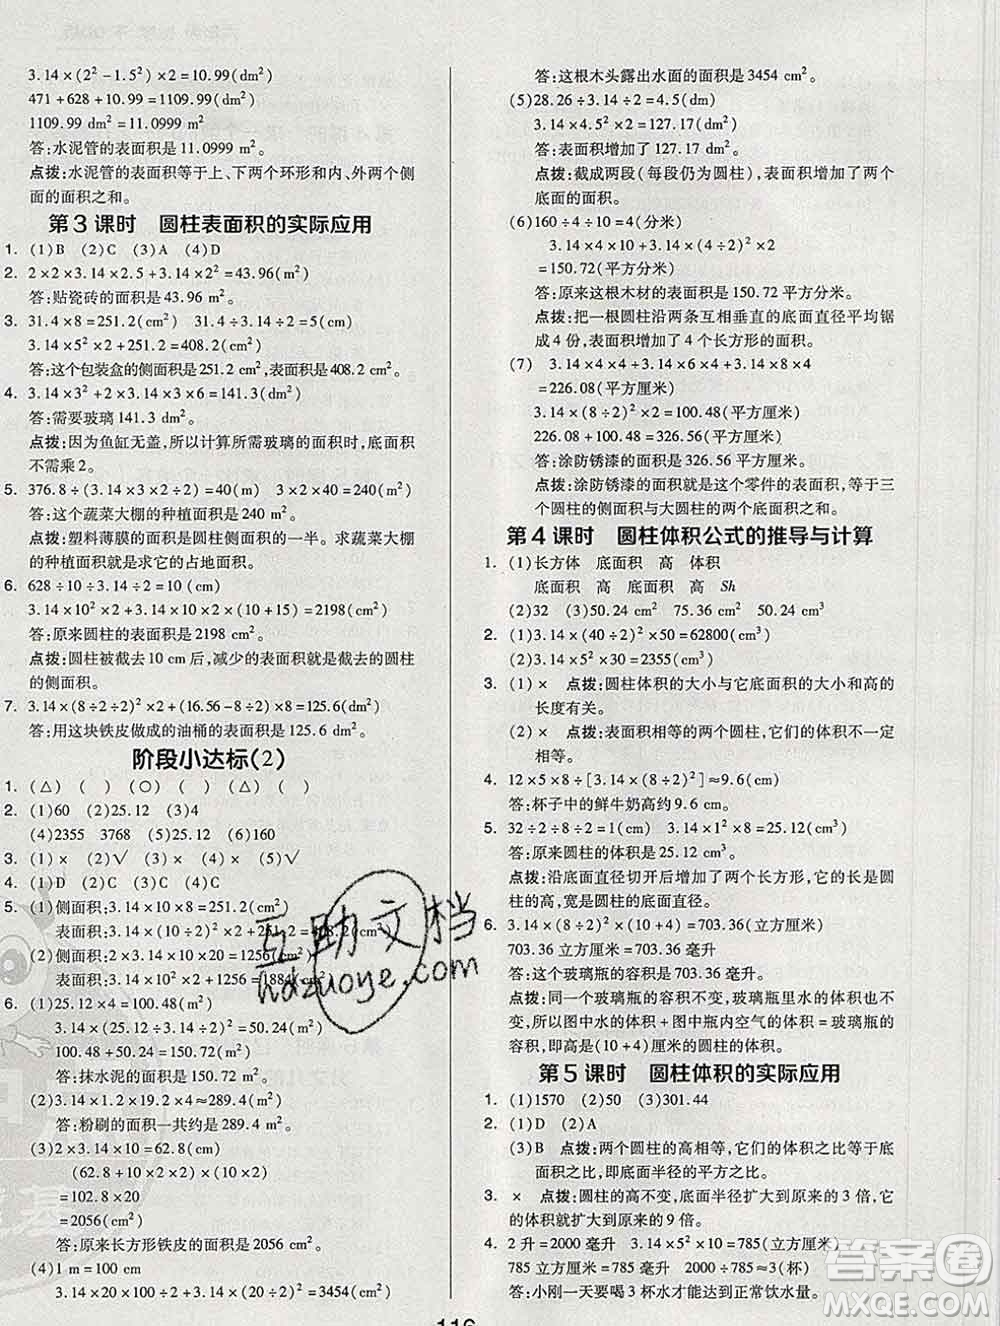 3.14×(2²-1.5²)×2=10.99(dm²)
471+628+10.99=1109.99(dm²)
1109.99 dm²=11.0999 m²
答:水泥管的表面积是11.0999 m²。
点拨:水泥管的表面积等于上、下两个环形和内、外两个侧
面的面积之和。
第3课时 圆柱表面积的实际应用
1. (1)B (2)C (3)A (4)C
2. 2×2×3.14×2.5+3.14×2²=43.96(m²)
答:贴瓷砖的面积是43.96 m²。
3. 31.4×8=251.2(cm²) 31.4÷3.14÷2=5(cm)
3.14×5²×2+251.2=408.2(cm²)
答:这个包装盒的侧面积是251.2 cm²,表面积是408.2 cm²。
4. 3.14×3²+2×3.14×3×6=141.3(dm²)
答:需要玻璃141.3 dm²。
点拨:因为鱼缸无盖,所以计算所需玻璃的面积时,底面积
不需乘2。
5. 376.8÷(3.14×3×2÷2)=40(m) 3×2×40=240(m²)
答:这个蔬菜大棚的种植面积是240 m²。
点拨:塑料薄膜的面积是圆柱侧面积的一半。求蔬菜大棚
的种植面积就是求它的占地面积。
6. 628÷10÷3.14÷2=10(cm)
3.14×10²×2+3.14×10×2×(15+10)=2198(cm²)
答:原来圆柱的表面积是2198 cm²。
点拨:圆柱被截去10 cm后,减少的表面积就是截去的圆柱
的侧面积。
7. 3.14×(8÷2÷2)²×2+(16.56-8÷2)×8=125.6(dm²)
答:用这块铁皮做成的油桶的表面积是125.6 dm²。
阶段小达标(2)
1. (△) ( ) (○) ( ) (△) ( )
2. (1)60 (2)25.12 (3)4
(4)2355 3768 (5)25.12 (6)160
3. (1)× (2)√ (3)× (4)√
4. (1)D (2)C (3)D
5. (1)侧面积:3.14×10×8=251.2(cm²)
表面积:3.14×(10÷2)²×2+251.2=408.2(cm²)
(2)侧面积:3.14×10×2×20=1256(cm²)
表面积:3.14×10²×2+1256=1884(cm²)
6. (1)25.12×2=50.24(m²)
3.14×(25.12÷3.14÷2)²=50.24(m²)
50.24+50.24=100.48(m²)
答:抹水泥的面积是100.48 m²。
(2)3.14×1.2×4.8×2×8≈289.4(m²)
答:粉刷的面积一共约是289.4 m²。
(3)2×3.14×10=62.8(cm)
(62.8+10×2×2)×(10×2)
=102.8×20
=2056(cm²)
答:原来长方形铁皮的面积是2056 cm²。
(4)1 m=100 cm
3.14×20×100÷2+3.14×(20÷2)²=3454(cm²)
答:这根木头露出水面的面积是3454 cm²。
(5)28.26÷3.14÷2=4.5(dm)
3.14×4.5²×2=127.17(dm²)
答:表面积增加了127.17 dm²。
点拨:截成两段(每段仍为圆柱),表面积增加了两个
底面的面积。
(6)160÷4÷10=4(分米)
3.14×4×10+3.14×(4÷2)²×2
=150.72(平方分米)
答:原来这根木材的表面积是150.72平方分米。
点拨:把一根圆柱沿两条互相垂直的底面直径平均锯
成4份,表面积增加了4个长方形的面积。
(7) 3.14×4×4+3.14×6×4+3.14×8×4
=226.08(平方厘米)
3.14×(8÷2)²×2=100.48(平方厘米)
226.08+100.48=326.56(平方厘米)
答:涂防锈漆的面积是326.56平方厘米。
点拨:涂防锈漆的面积就是这个零件的表面积,等于三
个圆柱的侧面积与大圆柱的两个底面积之和。
第4课时 圆柱体积公式的推导与计算
1. (1)长方体 底面积 高 体积
底面积 高 底面积 高 Sh
(2)32 (3)50.24 cm² 75.36 cm² 50.24 cm³
2. (1)3.14×(40÷2)²×50=62800(cm³)
(2)3.14×5²×30=2355(cm³)
3. (1)× 点拨:圆柱体积的大小与它底面积的大小和高的
长度有关。
(2)× 点拨:表面积相等的两个圆柱,它们的体积不一定
相等。
4. 12×5×8÷[3.14×(8÷2)²]≈9.6(cm)
答:杯子中的鲜牛奶高约9.6 cm。
5. 32÷2÷8÷2=1(cm) 3.14×1²×8=25.12(cm³)
答:原来圆柱的体积是25.12 cm³。
点拨:沿底面直径切开后,表面积增加两个长方形,长是圆柱
的高,宽是圆柱的底面直径。
6. 3.14×(8÷2)²×(10+4)=703.36(立方厘米)
703.36立方厘米=703.36毫升
答:这个玻璃瓶的容积是703.36毫升。
点拨:同一个玻璃瓶的容积不变,玻璃瓶里水的体积也不
变,所以图1中水的体积+图2中瓶内空气的体积=玻璃瓶
的容积,即高是(10+4)厘米的圆柱的体积。
第5课时 圆柱体积的实际应用
1. (1)1570 (2)50 (3)301.44
2. (1)D (2)A
(3)B 点拨:两个圆柱的高相等,它们的体积之比等于底
面积之比,即底面半径的平方之比。
3. × 点拨:圆柱的高不变,底面半径扩大到原来的3倍,它
的体积就扩大到原来的9倍。
4. 2升=2000毫升 3.14×5²×10=785(立方厘米)
785立方厘米=785毫升 2000÷785≈3(杯)
答:小刚一天要喝3杯水才能达到正常饮水量。
116
互助文档
hdzuoye.com
答案圈
MXQE.COM